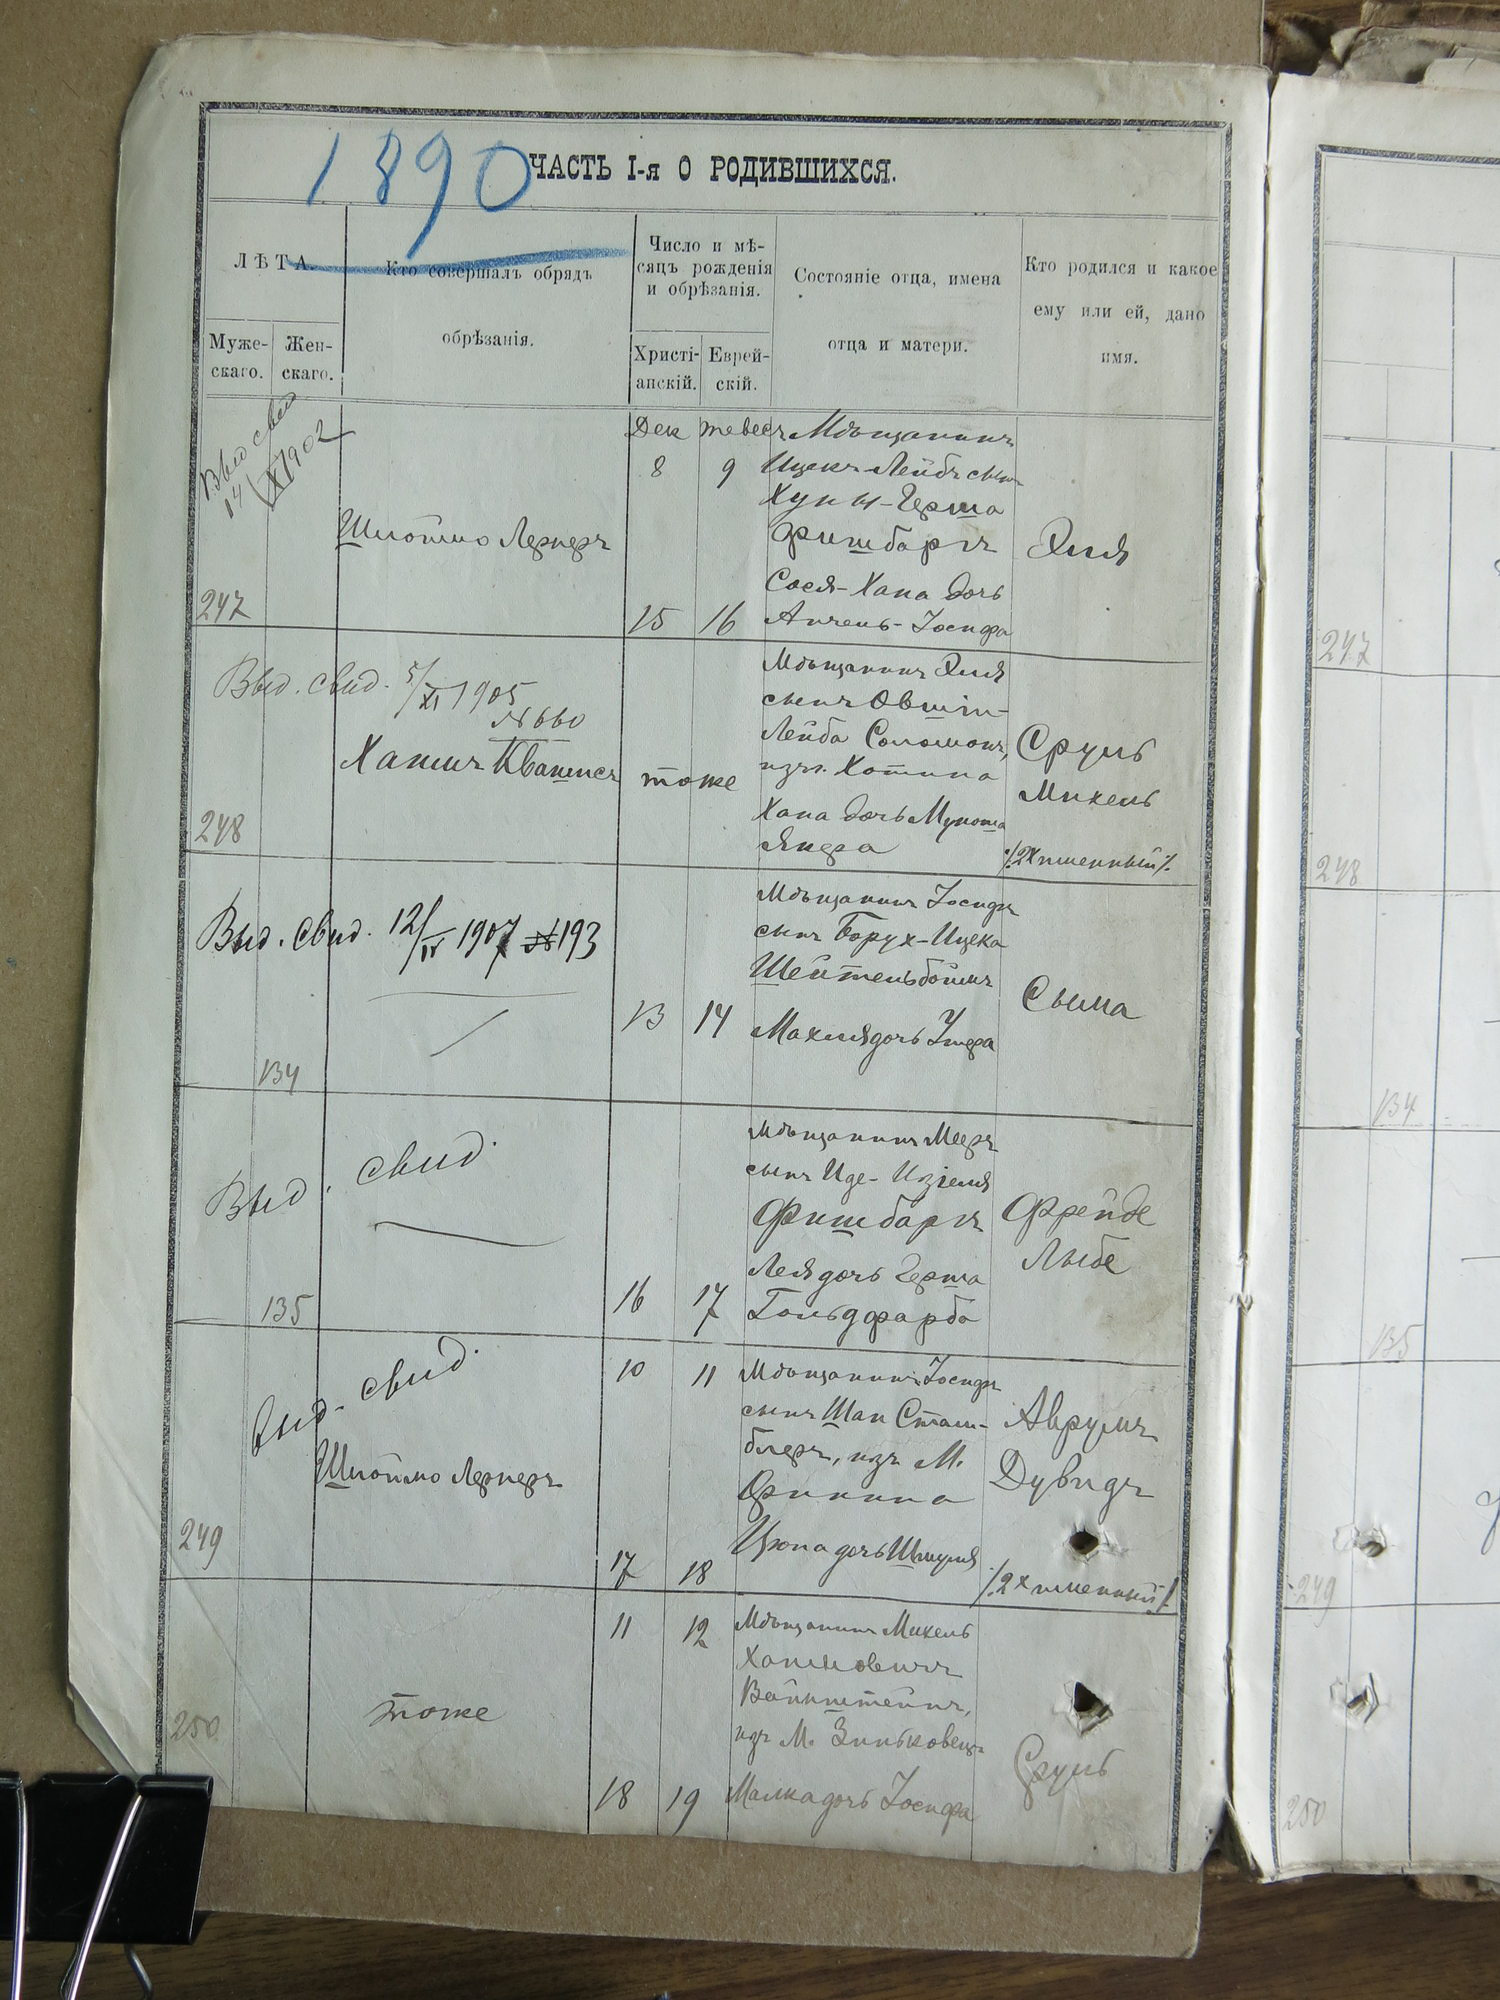 1890
ЧАСТЬ I-я О РОДИВШИХСЯ.
ЛѢТА.
Муже-
скаго.
Жен-
скаго.
Кто совершалъ обрядъ
обрѣзанія.
Число и мѣ-
сяцъ рожденія
и обрѣзанія.
Христі-
анскій.
Еврей-
скій.
Состояніе отца, имена
отца и матери.
Кто родился и какое
ему или ей, дано
имя.
Выд свид
14/XI 1902
247
Шлоймо Лернеръ
Дек Тевесъ
8 9
15 16
Мѣщанинъ
Ицекъ-Лейбъ сынъ
Хуны-Герша
Фишбаргъ
Сося-Хана дочь
Анчель-Іосифа
Эля
Выд. свид. 5/XI 1905
№ 660
248
Хаимъ Квашисъ
тоже
Мѣщанинъ Эля
сынъ Овшія-
Лейба Соломонъ,
изъ г. Хотина
Хана дочь Муноша
Янкра
Сруль
Михель
/:2х именный:/
Выд. свид. 12/IV 1907 № 193
134
13 14
Мѣщанинъ Іосифъ
сынъ Борух-Ицека
Шейтельбоймъ
Махля дочь
Сыма
Выд. свид.
135
16 17
Мѣщанинъ Мееръ
сынъ Иде-Изіеля
Фишбаргъ
Лея дочь Герша
Гольдфарба
Фрейде
Лыбе
Выд. свид.
249
Шлоймо Лернеръ
10 11
17 18
Мѣщанинъ Іосифъ
сынъ Шаи Сташ-
блеръ, изъ М.
Фрипина
Цюпа дочь Шмуля
Аврумъ
Дувидъ
/:2х именный:/
250
тоже
11 12
18 19
Мѣщанинъ Михель
Хаимовичъ
Вайнштейнъ,
изъ М. Зиньковецъ
Малка дочь Іосифа
Сруль
247
248
134
135
249
250